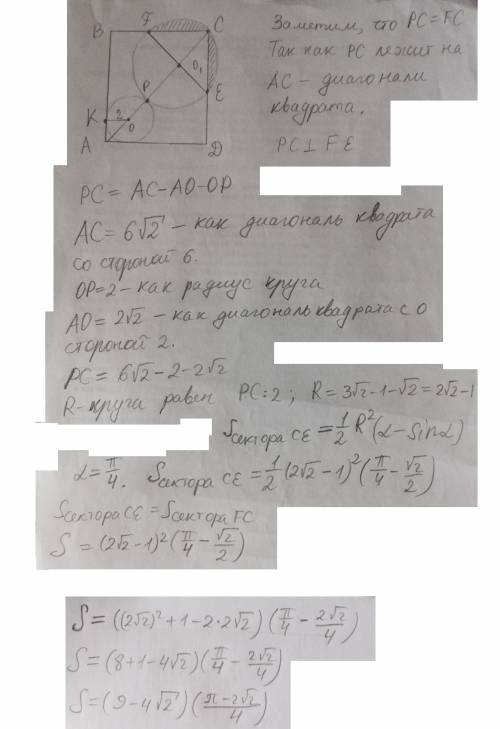 B F C
Заметим, что PC = FC
Так как PC лежит на
AC - диагонали
квадрата.
PC ⊥ FE
O₁
P
E
K 2 O
A D
PC = AC - AO - OP
AC = 6√2 - как диагональ квадрата
со стороной 6.
OP = 2 - как радиус круга
AO = 2√2 - как диагональ квадрата с о
стороной 2.
PC = 6√2 - 2 - 2√2
R - круга равен PC : 2 ; R = 3√2 - 1 - √2 = 2√2 - 1
Sсектора CE = 1/2 R² (α - Sin α)
α = π/4. Sсектора CE = 1/2 (2√2 - 1)² (π/4 - √2/2)
Sсектора CE = Sсектора FC
S = (2√2 - 1)² (π/4 - √2/2)
S = ((2√2)² + 1 - 2·2√2) (π/4 - 2√2/4)
S = (8 + 1 - 4√2) (π/4 - 2√2/4)
S = (9 - 4√2) (π - 2√2/4)